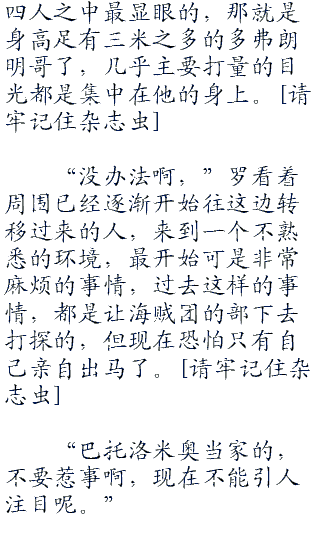 四人之中最显眼的，那就是
身高足有三米之多的多弗朗
明哥了，几乎主要打量的目
光都是集中在他的身上。[请
牢记住杂志虫]
“没办法啊，”罗看着
周围已经逐渐开始往这边转
移过来的人，来到一个不熟
悉的环境，最开始可是非常
麻烦的事情，过去这样的事
情，都是让海贼团的部下去
打探的，但现在恐怕只有自
己亲自出马了。[请牢记住杂
志虫]
“巴托洛米奥当家的，
不要惹事啊，现在不能引人
注目呢。”